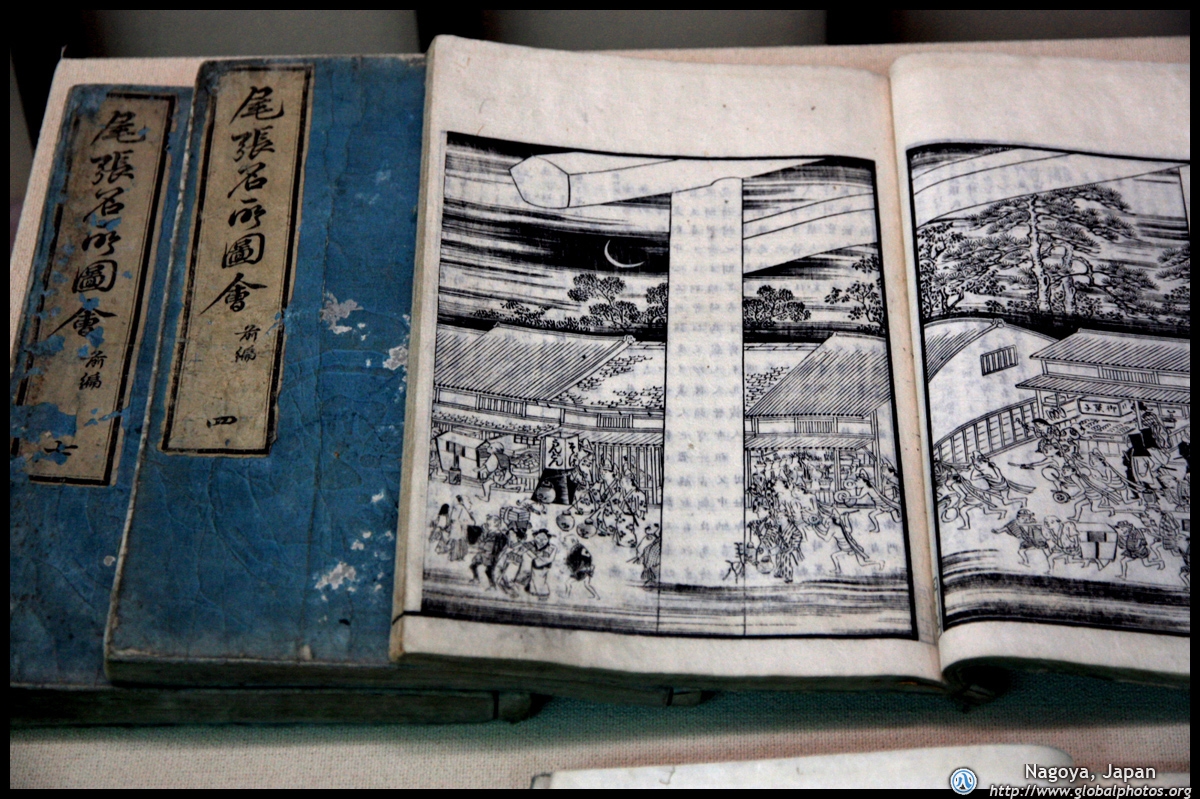 尾張名所圖會
前編
七
尾張名所圖會
前編
四
Nagoya, Japan
http://www.globalphotos.org